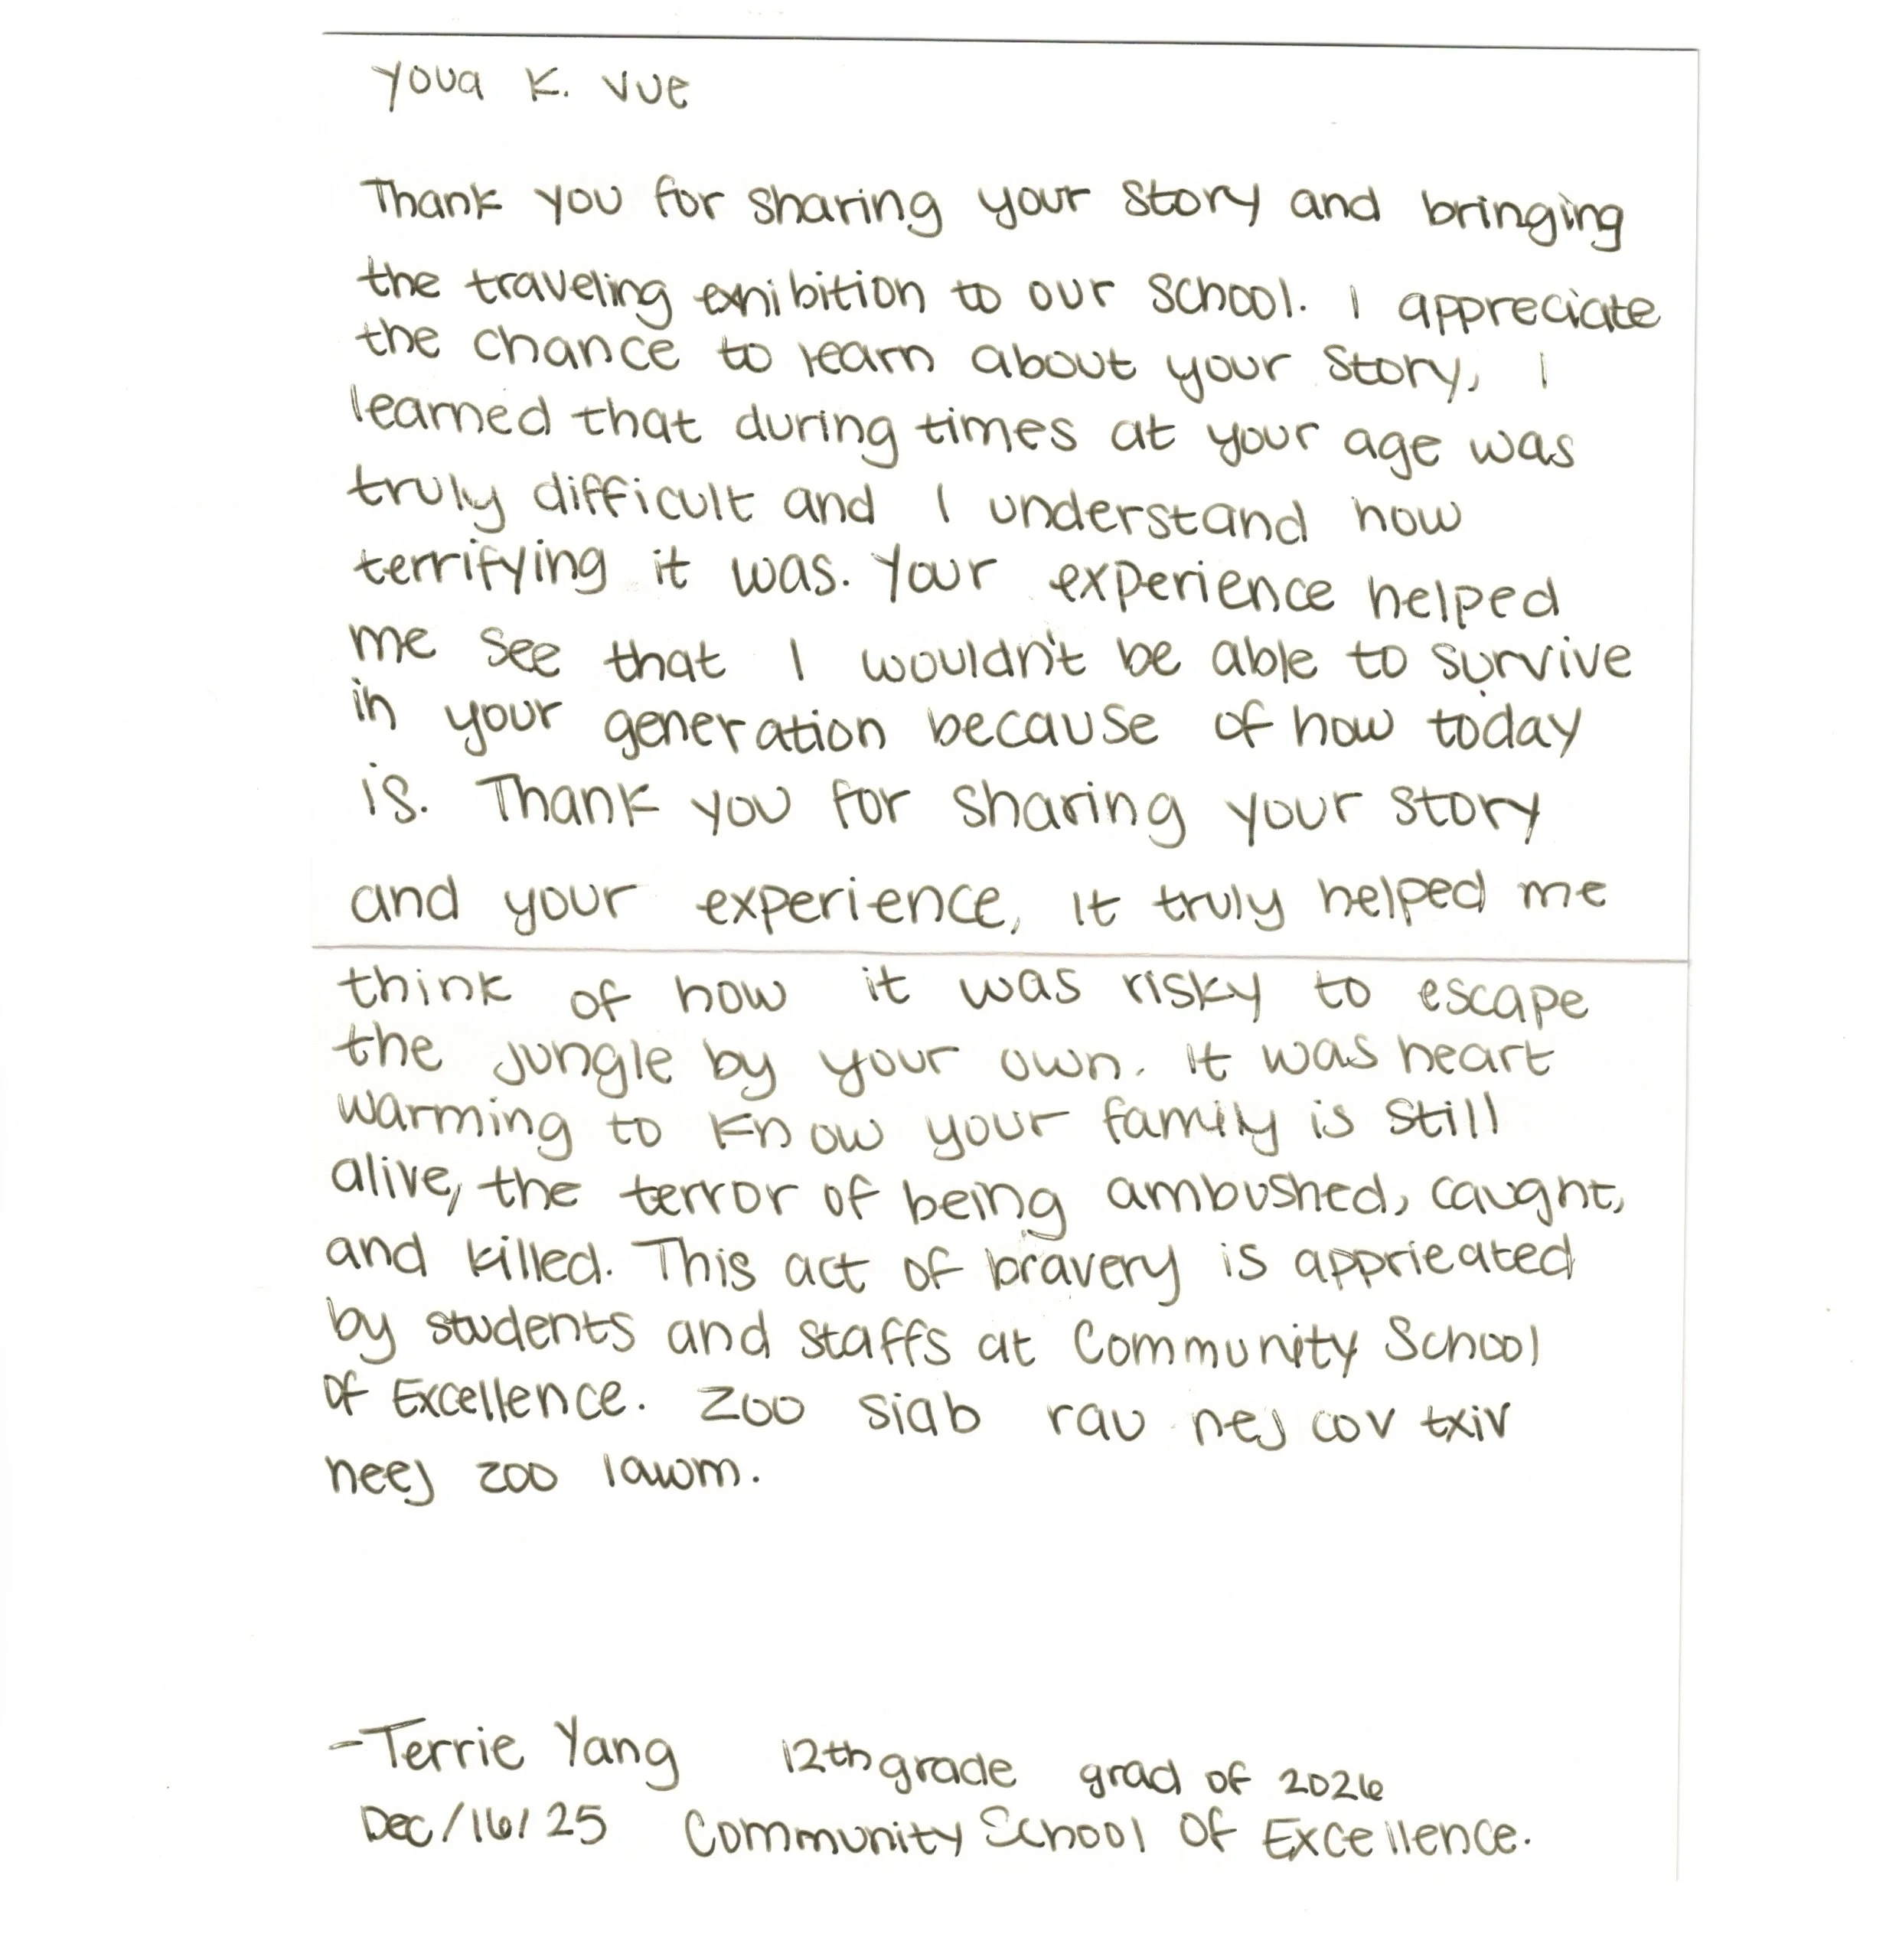 Youa K. Vue
Thank you for sharing your story and bringing
the traveling exhibition to our school. I appreciate
the chance to learn about your story, I
learned that during times at your age was
truly difficult and I understand how
terrifying it was. Your experience helped
me see that I wouldn't be able to survive
in your generation because of how today
is. Thank you for sharing your story
and your experience, it truly helped me
think of how it was risky to escape
the jungle by your own. It was heart
warming to know your family is still
alive, the terror of being ambushed, caught,
and killed. This act of bravery is apprieated
by students and staffs at Community School
Of Excellence. Zoo siab rau nej cov txiv
neej zoo lawm.
-Terrie Yang 12th grade grad of 2026
Dec/16/25 Community School Of Excellence.